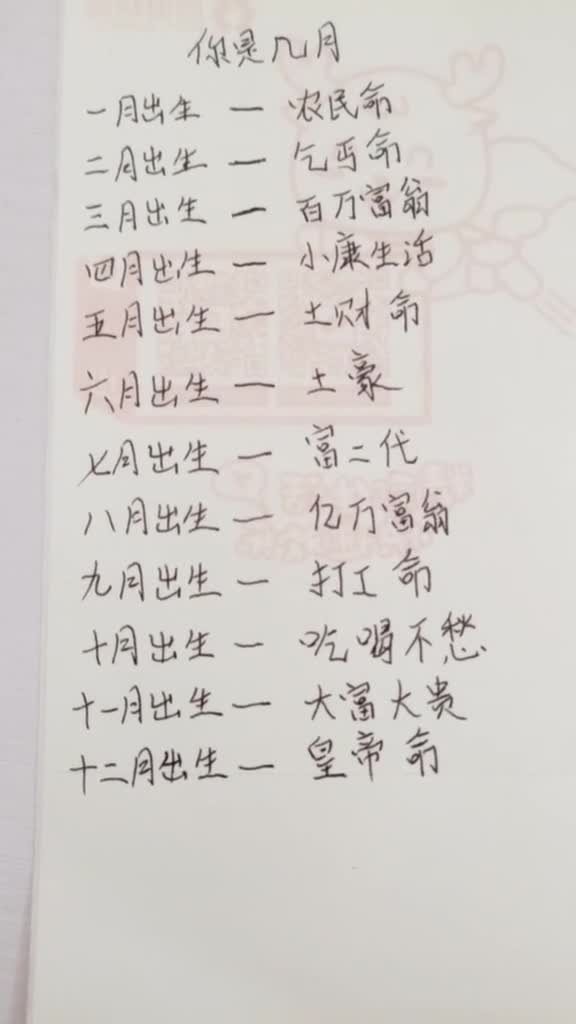 你是几月
一月出生 — 农民命
二月出生 — 乞丐命
三月出生 — 百万富翁
四月出生 — 小康生活
五月出生 — 土财命
六月出生 — 土豪
七月出生 — 富二代
八月出生 — 亿万富翁
九月出生 — 打工命
十月出生 — 吃喝不愁
十一月出生 — 大富大贵
十二月出生 — 皇帝命